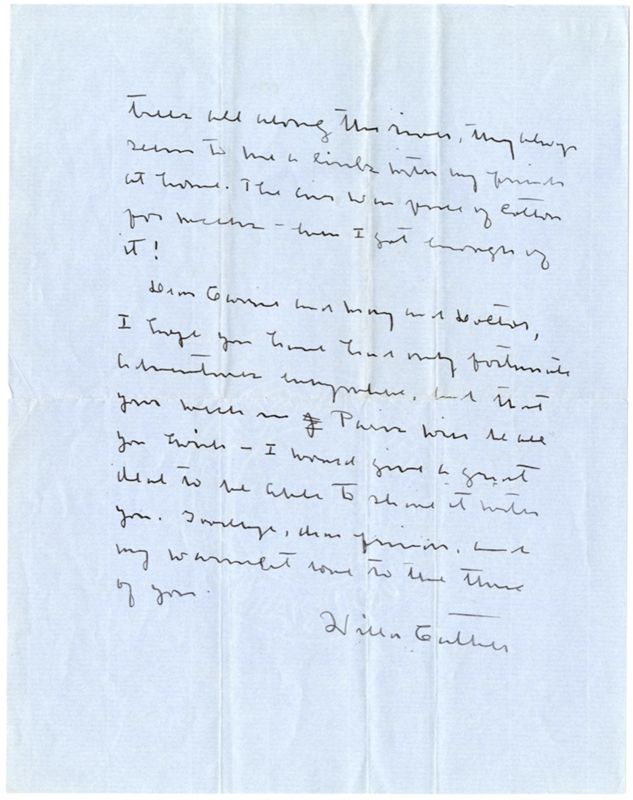 trees all along the river, they always
seem to me a link with my friends
at home. The air was full of cotton
for weeks - how I got enough of
it!
Dear Carrie and Mary and Doctor,
I hope you have had only fortunate
adventures everywhere, and that
your week in Paris will be all
you wish - I would give a great
deal to be able to share it with
you. Goodbye, dear friends, and
my warmest love to the three
of you.
Willa Cather